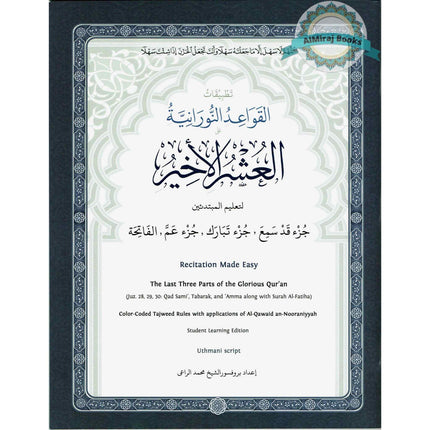 AlMiraj Books
اللهم لا سهل إلا ما جعلته سهلا وأنت تجعل الحزن إذا شئت سهلا
تطبيقات
القَوَاعِدُ النُّورَانِيَّةُ
على
العُشْرِ الأَخِيرِ
لتعليم المبتدئين
جُزْء قَدْ سَمِعَ , جُزْء تَبَارَكَ , جُزْء عَمَّ , الفَاتِحَة
Recitation Made Easy
The Last Three Parts of the Glorious Qur'an
(Juz. 28, 29, 30: Qad Sami', Tabarak, and 'Amma along with Surah Al-Fatiha)
Color-Coded Tajweed Rules with applications of Al-Qawaid an-Nooraniyyah
Student Learning Edition
Uthmani script
إعداد بروفسور الشيخ محمد الراعي